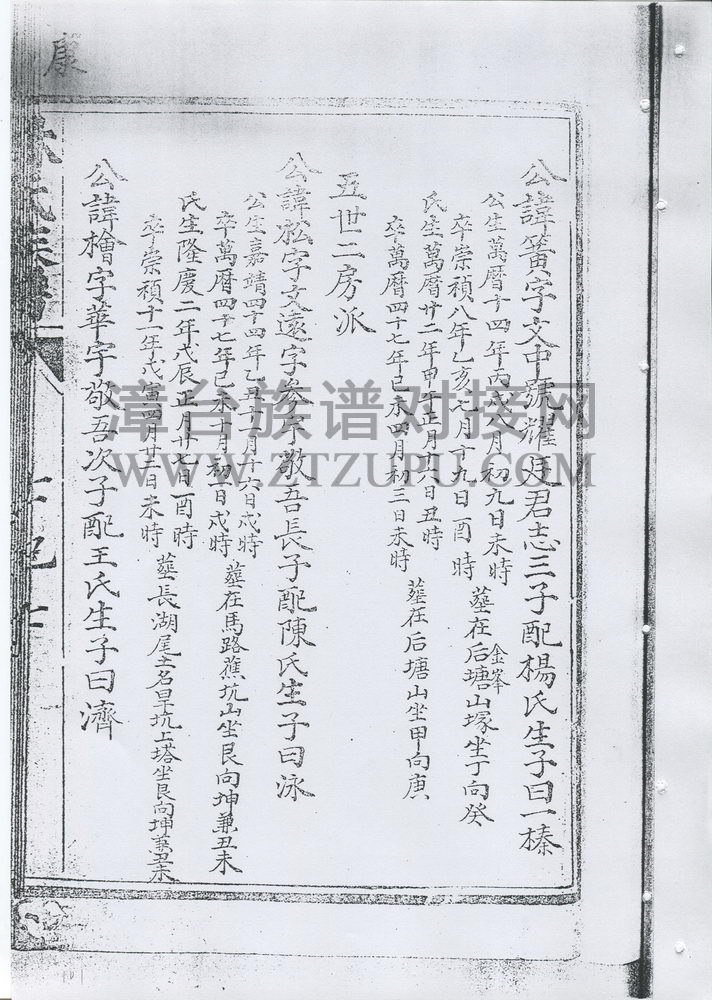 康
公諱簧字文中號耀廷君志三子配楊氏生子曰一榛
公生萬曆十四年丙戌八月初九日未時
卒崇禎八年乙亥七月十九日酉時
葬在后塘山塚坐丁向癸
金峯
氏生萬曆廿二年甲午正月十六日丑時
卒萬曆四十七年己未四月初三日未時
葬在后塘山坐甲向庚
五世二房派
公諱松字文遠字參宇敬吾長子配陳氏生子曰泳
公生嘉靖四十四年乙丑十一月十六日戌時
卒萬曆四十七年己未十月初一日戌時
葬在馬路蕉坑山坐艮向坤兼丑未
氏生隆慶二年戊辰正月廿七日酉時
卒崇禎十一年戊寅四月廿二日未時
葬長湖尾土名旱坑上塔坐艮向坤兼丑未
公諱檜字華宇敬吾次子配王氏生子曰濟
漳台族谱对接网
WWW.ZTZUPU.COM